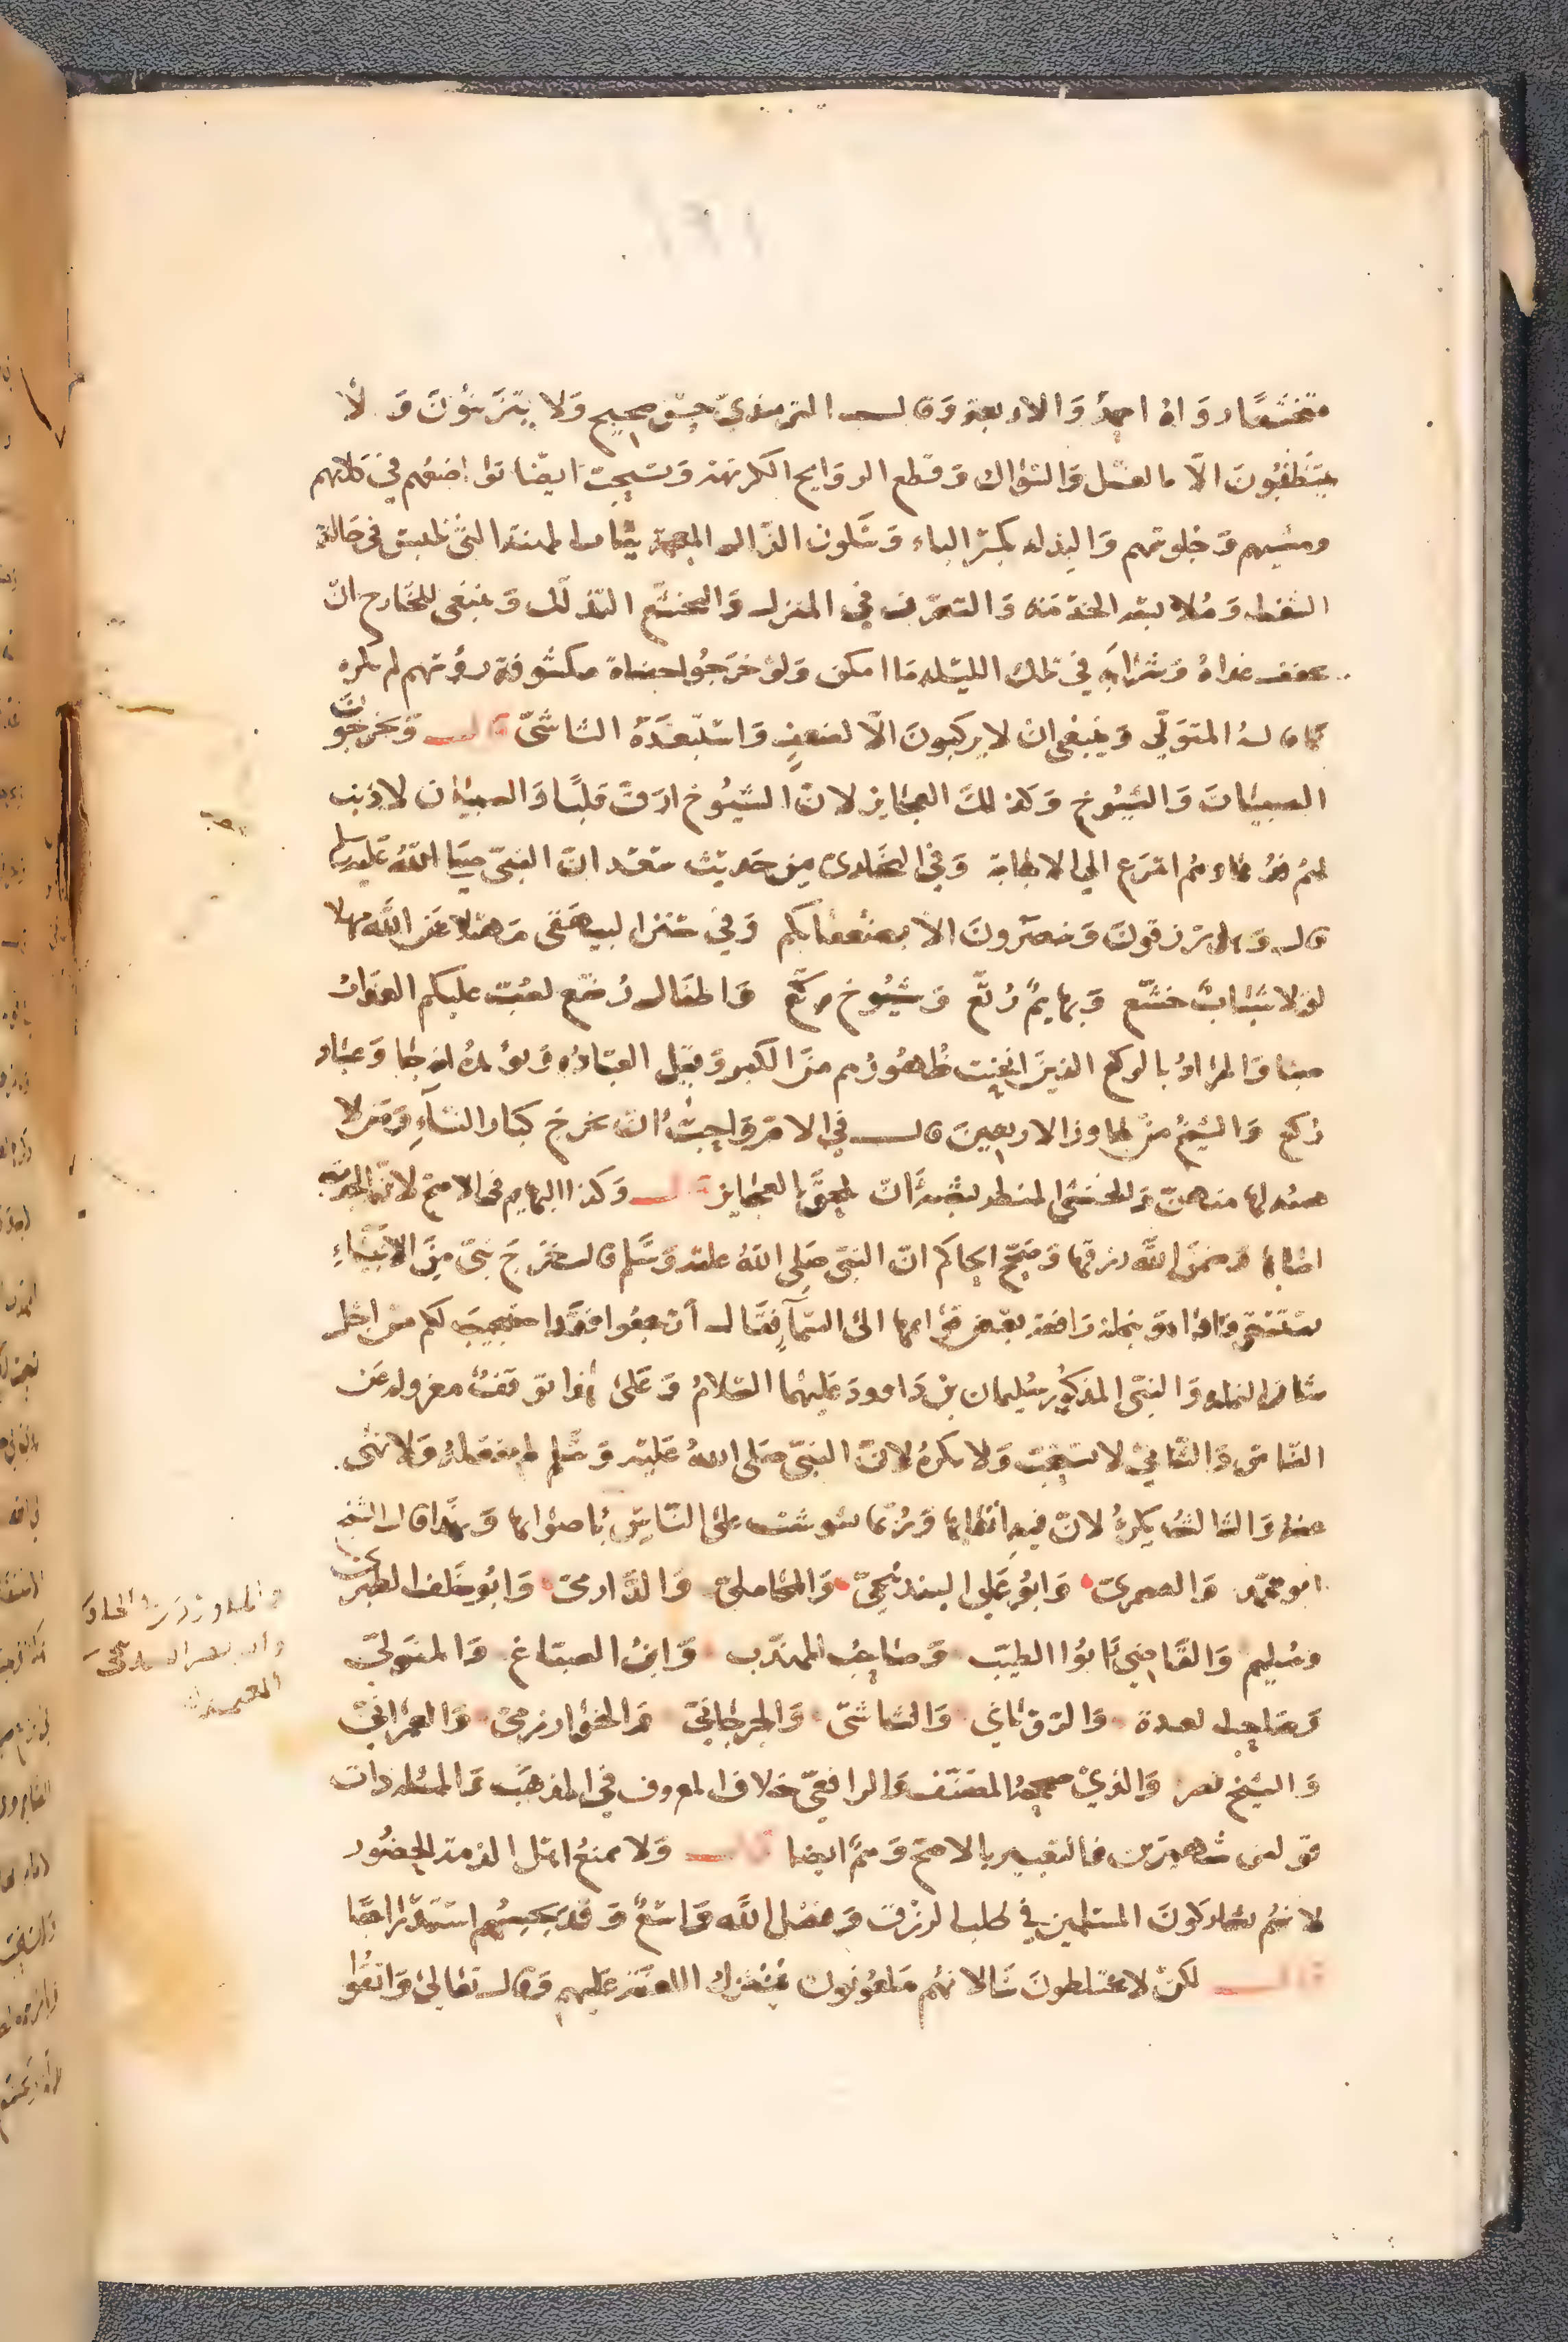 متخشعا رواه احمد والاربعة وقال الترمذي حسن صحيح ولا يتزينون ولا
يتنظفون الا بالغسل والسواك وقطع الروايح الكريهة ويستحب ايضا تواضعهم في كلامهم
ومشيهم وجلوسهم والبذلة بكسر الباء وسكون الذال المعجمة ثياب المهنة التي تلبس في حالة
الشغل وملابسة الخدمة والتصرف في المنزل والتخشع التذلل وينبغي للخارج ان
يخفف غداه وشرابه في تلك الليلة ما امكن ولو خرجوا حفاة مكشوفة رؤسهم لم يكره
كما قاله المتولي وينبغي ان لا يركبون الا لضعف واستبعده الشاشي قال ويخرجون
الصبيان والشيوخ وكذلك العجايز لان الشيوخ ارق قلبا والصبيان لا ذنب
لهم فدعاوهم اسرع الي الاجابة وفي البخاري من حديث سعد ان النبي صلى الله عليه وسلم
قال وهل ترزقون وتنصرون الا بضعفائكم وفي سنن البيهقي مهلا عن الله مهلا
لولا شباب خشع وبهايم رتع وشيوخ ركع واطفال رضع لصب عليكم العذاب
صبا والمراد بالركع الذين انحنت ظهورهم من الكبر وقيل العبادة ويؤيده لولا عباد
ركع والشيخ من جاوز الاربعين قال في الام واحب ان يخرج كبار النساء ومن لا
هيئة لها منهن والخنثى المنظر يشبه ان يلحق بالعجايز قال وكذا البهايم في الاصح لان الجدب قد
اصابها وضمن الله رزقها وصحح الحاكم ان النبي صلى الله عليه وسلم قال خرج نبي من الانبياء
يستسقي فاذا هو بنملة رافعة بعض قوائمها الى السماء فقال ارجعوا فقد استجيب لكم من اجل
شان النملة والنبي المذكور سليمان بن داوود عليهما السلام وعلى هذا توقف معزولة عن
الناس والثاني لا يستحب ولا يكره لان النبي صلى الله عليه وسلم لم يفعله ولا نهى
عنه والثالث يكره لان فيه اتعابها وربما شوشت على الناس باصواتها وبهذا قال الشيخ
ابو محمد والصيمري وابو علي البندنيجي والمحاملي والدارمي وابو خلف الطبري
وسليم والقاضي ابوا الطيب وصاحب المهذب وابن الصباغ والمتولي
وصاحب العدة والروياني والشاشي والجرجاني والخوارزمي والعمراني
والشيخ نصر والذي صححه المصنف والرافعي خلاف المعروف في المذهب والمسئلة ذات
قولين شهيرين فالتعبير بالاصح وهم ايضا قال ولا يمنع اهل الذمة الحضور
لانهم يشاركون المسلمين في طلب الرزق وفضل الله واسع وقد يجيبهم استدراجا
قال لكن لا يختلطون بنا لانهم ملعونون فتنزل اللعنة عليهم وقال تعالى واتقوا